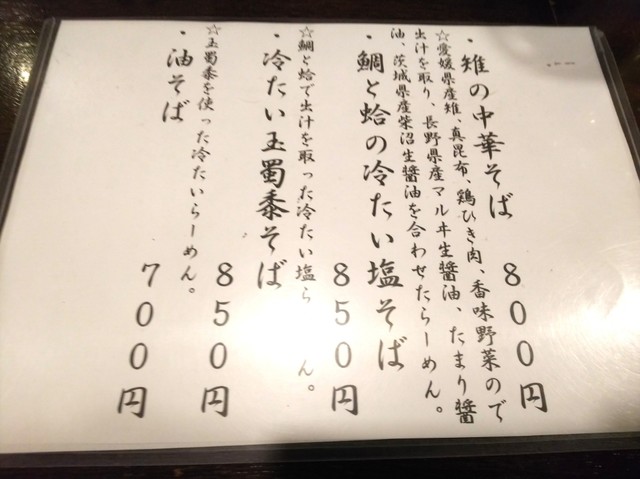 ・雉の中華そば
800円
☆愛媛県産雉、真昆布、鶏ひき肉、香味野菜ので
出汁を取り、長野県産マルヰ生醤油、たまり醤
油、茨城県産柴沼生醤油を合わせたらーめん。
・鯛と蛤の冷たい塩そば
850円
☆鯛と蛤で出汁を取った冷たい塩ら ん。
・冷たい玉蜀黍そば
850円
☆玉蜀黍を使った冷たいらーめん。
・油そば
700円